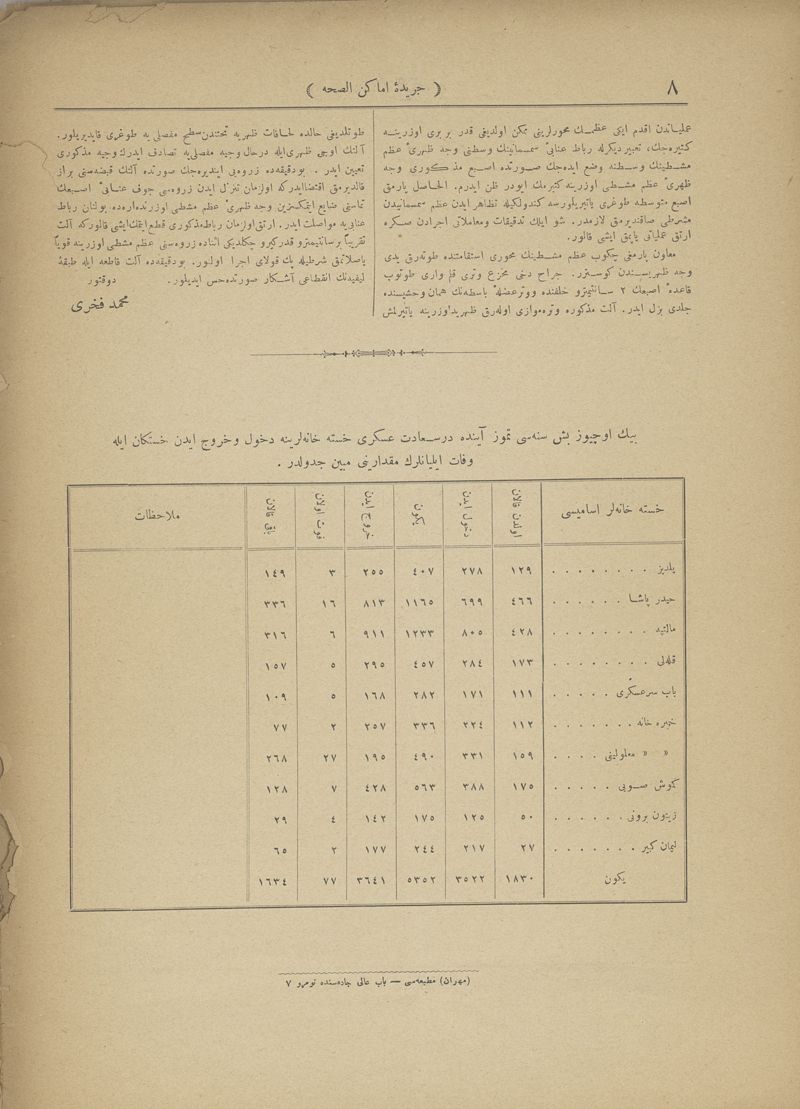 ٨
﴿ جریدۀ اماكن الصحه ﴾
عملیاتدن اقدم ایكی عظمك محورلرینی ممكن اولدیغی قدر بربری اوزرینـه
كتیره‌جك، تعبیر دیكرله رباط عنابیٔ سمسمانینك وسطنی وجه ظهریٔ عظم
مشطینك وسطنه وضع ایده‌جك صورتده اصبع مذكوری وجه
ظهریٔ عظم مشطی اوزرینه كتیرمك ایودر ظن ایدرم. الحاصل پارمق
اصبع متوسطه طوغری یاتیریلورسه كندولكیله تظاهر ایدن عظم سمسمانیدن
مشرطی صاقندیرمق لازمدر. شو ایلك تدقیقات ومعاملاتی اجرادن صكره
ارتق عملیاتی یاپمق ایشی قالور.
معاون پارمغی چكوب عظم مشطینك محوری استقامتنده طوته‌رق یدی
وجه ظهریسندن كوستریر. جراح دخی مخرع وتری قلم واری طوتوب
قاعدۀ اصبعك ٢ سانتیمترو خلفنده ووتر عضلهٔ باسطه‌نك همان وحشیسنده
جلدی بزل ایدر. آلت مذكوره وتره موازی اوله‌رق ظهرید اوزرینه یاتیرلمش
طوتلدیغی حالده لحافات ظهریه تحتندن سطح مفصلی‌یه طوغری قایدیریلور.
آلتك اوجی ظهری ایله درحال وجیه مفصلی‌یه تصادف ایدرك وجیه مذكوری
تعیین ایدر. بودقیقه‌ده زروه‌یی ایندیره‌جك صورتده آلتك قبضه‌سنی براز
قالدیرمق اقتضا ایدركه اوزمان تنزل ایدن زروه‌یی جوف عنابیٔ اصبعك
تماسنی ضایع ایتمكسزین وجه ظهریٔ عظم مشطی اوزرنده اراده بولنان رباط
عنابی‌یه مواصلت ایدر. ارتق اوزمان رباط مذكوری قطع ایتمك ایشی قالوركه آلت
تقریباً برسانتیمترو قدر كیرو چكلدیكی اثناده زروه‌سنی عظم مشطی اوزرینه قویاً
یاصلاتمق شرطیله پك قولای اجرا اولنور. بودقیقه‌ده آلت قاطعه ایله طبقۀ
لیفیه‌نك انقطاعی آشكار صورتده حس ایدیلور. دوقتور
محمد فخری
بیك اوچیوز بش سنه‌سی تموز آینده درسعادت عسكری خسته خانه‌لرینه دخول وخروج ایدن خستكان ایله
وفات ایلیانلرك مقدارینی مبین جدولدر .
خسته خانه‌لر اسامیسی اولدن قالان دخول ایدن یكون خروج ایدن فوت اولان باقی قالان ملاحظات
یلدیز . . . . . . . . ١٢٩ ٢٧٨ ٤٠٧ ٢٥٥ ٣ ١٤٩
حیدر پاشا . . . . . . ٤٦٦ ٦٩٩ ١١٦٥ ٨١٣ ١٦ ٣٣٦
مالتپه . . . . . . . . ٤٢٨ ٨٠٥ ١٢٣٣ ٩١١ ٦ ٣١٦
قله‌لی . . . . . . . . ١٧٣ ٢٨٤ ٤٥٧ ٢٩٥ ٥ ١٥٧
باب سرعسكری . . . . . ١١١ ١٧١ ٢٨٢ ١٦٨ ٥ ١٠٩
خمبره خانه . . . . . . . ١١٢ ٢٢٤ ٣٣٦ ٢٥٧ ٢ ٧٧
« « معلولینی . . . . ١٥٩ ٣٣١ ٤٩٠ ١٩٥ ٢٧ ٢٦٨
كموش صویی . . . . . ١٧٥ ٣٨٨ ٥٦٣ ٤٢٨ ٧ ١٢٨
زیتون برونی . . . . . . ٥٠ ١٢٥ ١٧٥ ١٤٢ ٤ ٢٩
لیمان كبیر . . . . . . . ٢٧ ٢١٧ ٢٤٤ ١٧٧ ٢ ٦٥
یكون ١٨٣٠ ٣٥٢٢ ٥٣٥٢ ٣٦٤١ ٧٧ ١٦٣٤
(مهران) مطبعه‌سی — باب عالی جاده‌سنده نومرو ٧